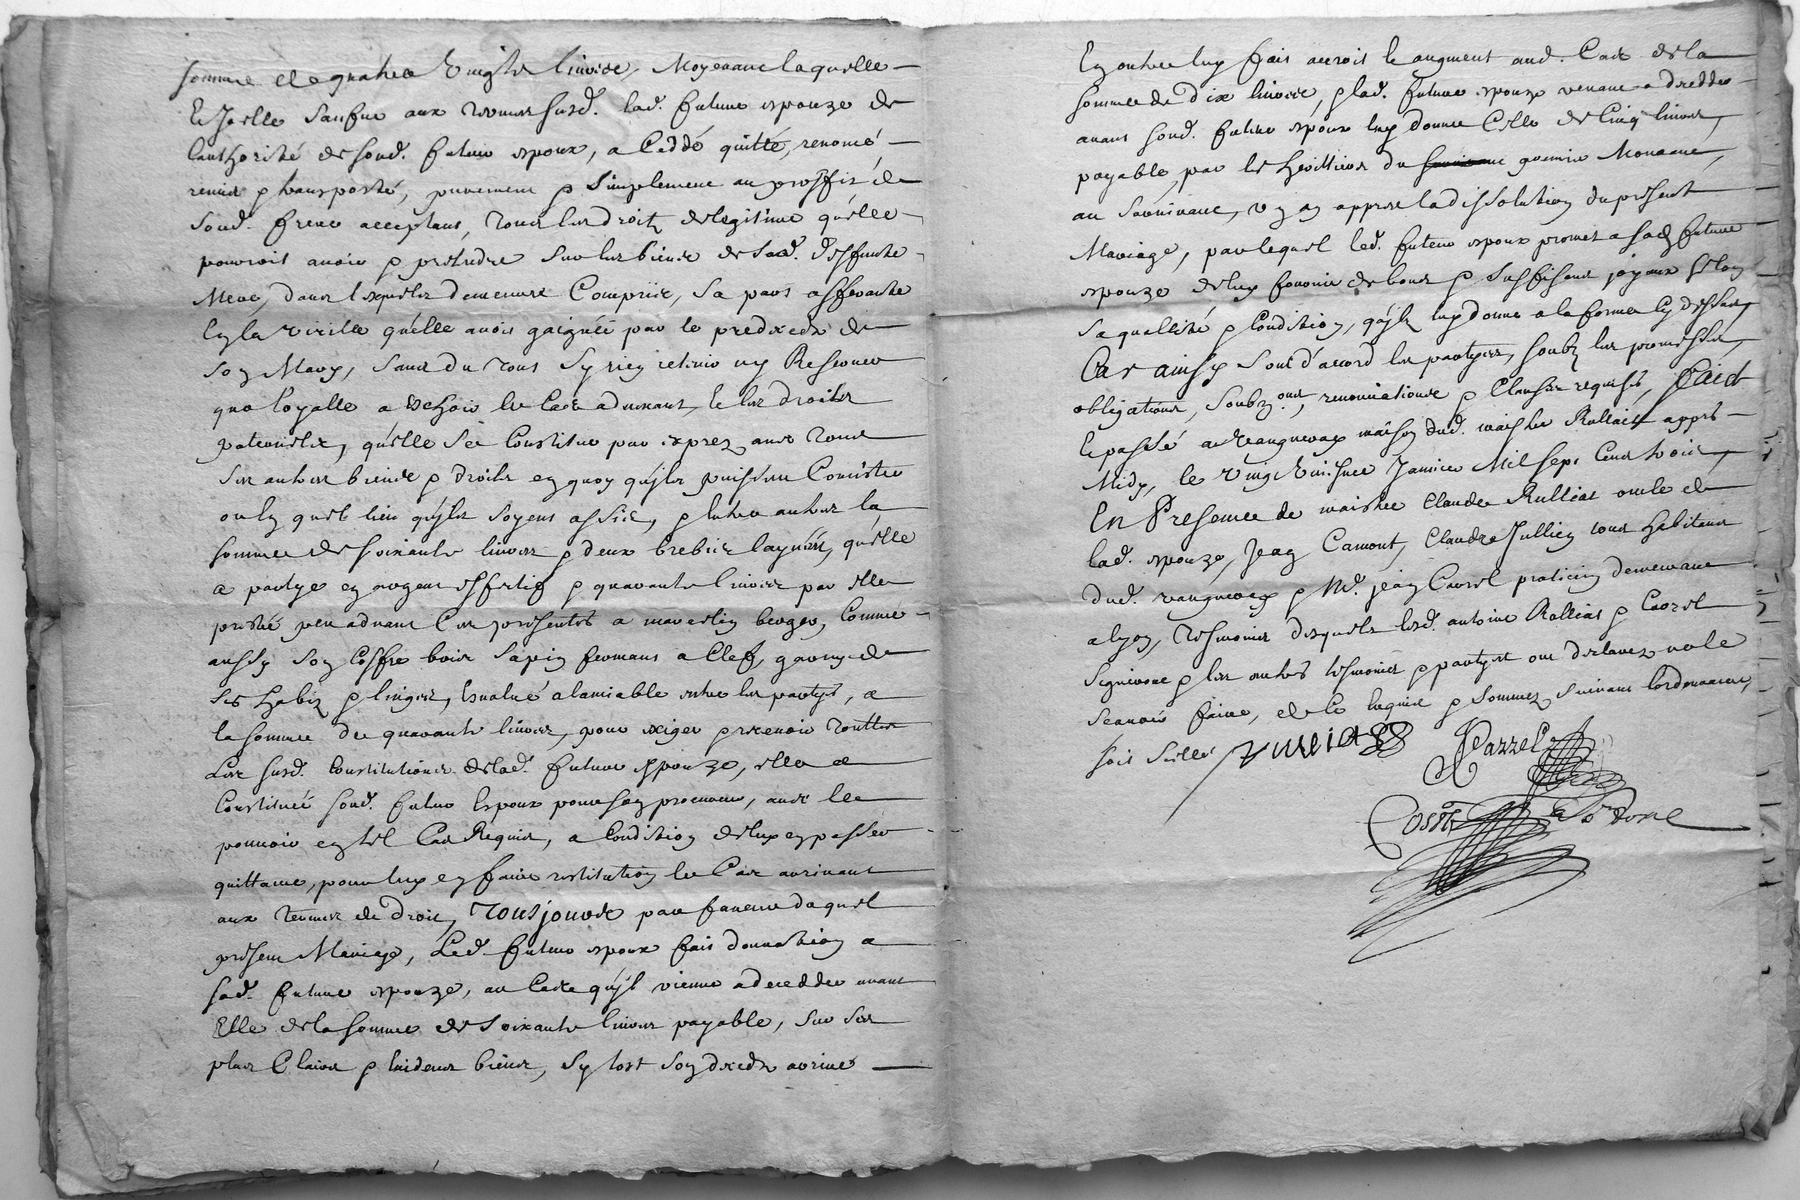 somme de quatre vingts livres, Moyenant laquelle
Et Icelle sauſue aux termes susd. lad. future espouze de
l'authorité de sond. futur espoux, a Ceddé quitté, renoncé
remis & transporté, purement & simplement au proffit de
sond. frere acceptant, tous les droits de legitime quelle
pourroit avoir & pretendre sur les biens de sad. deffuncte
Mere, dans lesquels demeure Comprise, sa part afferante
en la virille quelle avoit gaignéé par le predeceds de
son Mary, sans du tout sy rien retenir ny Reserver
que loyalle a Echoir le Cas advenant, Et les droits
paternels, quelle sèt Constitue par exprez avec tous
ses autres biens & droits en quoy quils puissent Consister
ou en quel lieu quils soyent assis, & entre autres la
somme de soixante livres & deux brebis layniéres, quelle
a partye en argent effectif & quarante livres par elle
presté peu advant Ces presentes a marcelin berger, Comme
aussy son Coffre bois sapin fermant a Clef, garny de
ses habiz & linges, Evalué a lamiable entre les partyes, a
la somme de quarante livres, pour exiger & recevoir touttes
Les susd. Constitutions delad. future Espouze, elle a
Constitué sond. futur Espoux pour son procureur, avec le
pouvoir en tel Cas Requis, a Condition de luy en passer
quittance, pour luy en faire restitution le Cas arrivant
aux termes de droit, Tousjours par faveur duquel
present Mariage, Led. futur espoux fait donnation a
sad. future espouze, au Cas quil vienne a decedder avant
Elle de la somme de soixante livres payable, sur ses
plus Clairs & liddes biens, sy tost son deceds arrivé
En outre luy fait accroit & augment aud. Cas de la
somme de dix livres, & lad. future espouze venant a decedder
avant sond. futur espoux luy donne Celle de Cinq livres,
payable par les heritiers du premier Mourant,
au survivant, un an apprez la dissolution du present
Mariage, par lequel led. futur espoux promet a sad. future
espouze de luy fournir de bons & suffisans joyaux selon
sa quallité & Condition, quil luy donne a la forme cy dessus,
Car ainsy sont d'acord les partyes, soubz les promesses,
obligations, soubz.ons, renonciations & Clauses requises, Faict
& passé a vaugneray maison dud. maistre Rulliat appres
Midy, le vingt huictiesme Janvier Mil sept Cent trois,
En Presence de maistre Claude Rulliat oncle de
lad. espouze, Jean Camont, Claude Jullien tous habitans
dud. vaugneray & Me. jean Cazrel praticien demeurant
a lyon, tesmoins desquels lesd. antoine Rulliat & Cazrel
signeront & les autres tesmoins & partyes ont declarez ne le
scavoir faire, de ce Enquis & sommez suivant lordonnance,
soit scellé rulliat Cazrel